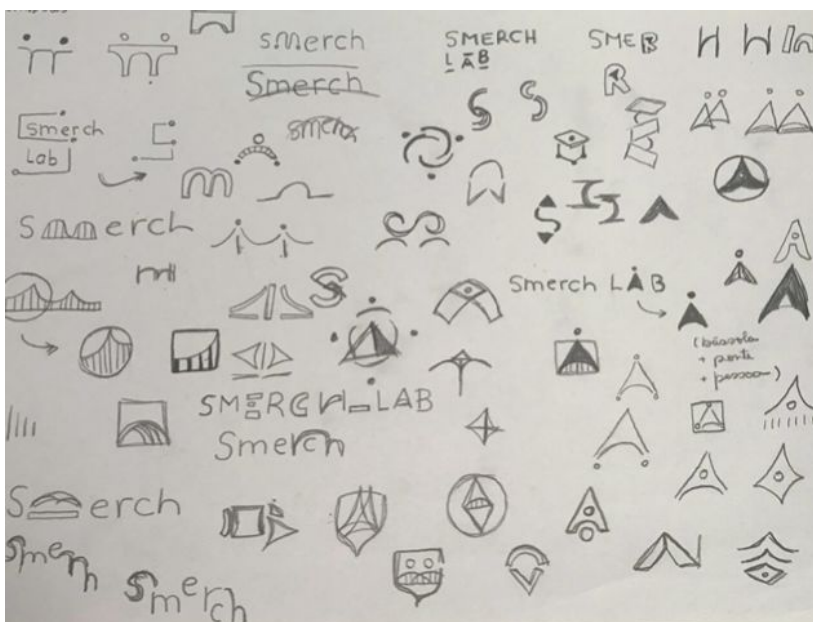 smerch
Smerch
SMERCH
LAB
SMER
R
H H In
Smerch
Lab
smerch
S S
m
Smmerch
S
m
S
Smerch LAB
(bússola
+ ponte
+ pessoa)
SMERCH LAB
Smerch
Smerch
Smerch
Smerch